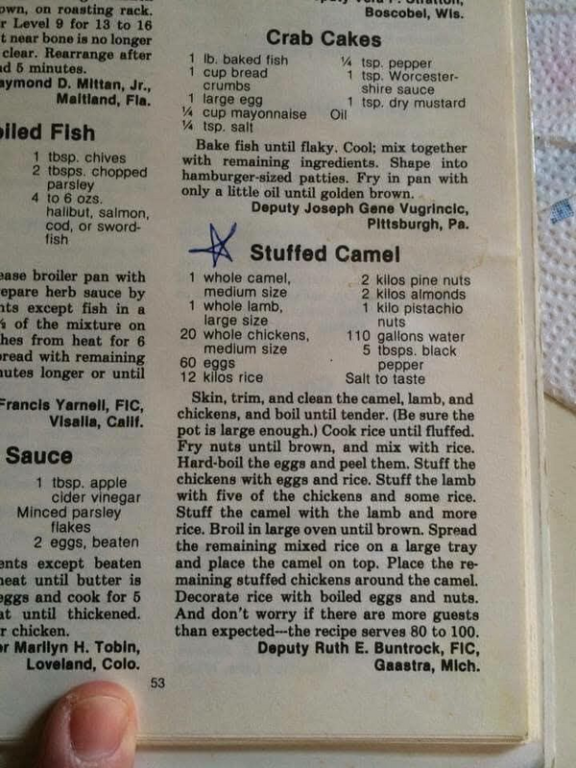 own, on roasting rack.
r Level 9 for 13 to 16
t near bone is no longer
clear. Rearrange after
nd 5 minutes.
aymond D. Mittan, Jr.,
Maitland, Fla.
oiled Fish
1 tbsp. chives
2 tbsps. chopped
parsley
4 to 6 ozs.
halibut, salmon,
cod, or sword-
fish
ease broiler pan with
epare herb sauce by
nts except fish in a
of the mixture on
hes from heat for 6
pread with remaining
nutes longer or until
Francis Yarnell, FIC,
Visalia, Calif.
Sauce
1 tbsp. apple
cider vinegar
Minced parsley
flakes
2 eggs, beaten
ents except beaten
heat until butter is
eggs and cook for 5
at until thickened.
r chicken.
or Marilyn H. Tobin,
Loveland, Colo.
Boscobel, Wis.
Crab Cakes
1 lb. baked fish
1 cup bread
crumbs
1 large egg
¼ cup mayonnaise
¼ tsp. salt
¼ tsp. pepper
1 tsp. Worcester-
shire sauce
1 tsp. dry mustard
Oil
Bake fish until flaky. Cool; mix together
with remaining ingredients. Shape into
hamburger-sized patties. Fry in pan with
only a little oil until golden brown.
Deputy Joseph Gene Vugrincic,
Pittsburgh, Pa.
Stuffed Camel
1 whole camel,
medium size
1 whole lamb,
large size
20 whole chickens,
medium size
60 eggs
12 kilos rice
2 kilos pine nuts
2 kilos almonds
1 kilo pistachio
nuts
110 gallons water
5 tbsps. black
pepper
Salt to taste
Skin, trim, and clean the camel, lamb, and
chickens, and boil until tender. (Be sure the
pot is large enough.) Cook rice until fluffed.
Fry nuts until brown, and mix with rice.
Hard-boil the eggs and peel them. Stuff the
chickens with eggs and rice. Stuff the lamb
with five of the chickens and some rice.
Stuff the camel with the lamb and more
rice. Broil in large oven until brown. Spread
the remaining mixed rice on a large tray
and place the camel on top. Place the re-
maining stuffed chickens around the camel.
Decorate rice with boiled eggs and nuts.
And don't worry if there are more guests
than expected—the recipe serves 80 to 100.
Deputy Ruth E. Buntrock, FIC,
Gaastra, Mich.
53